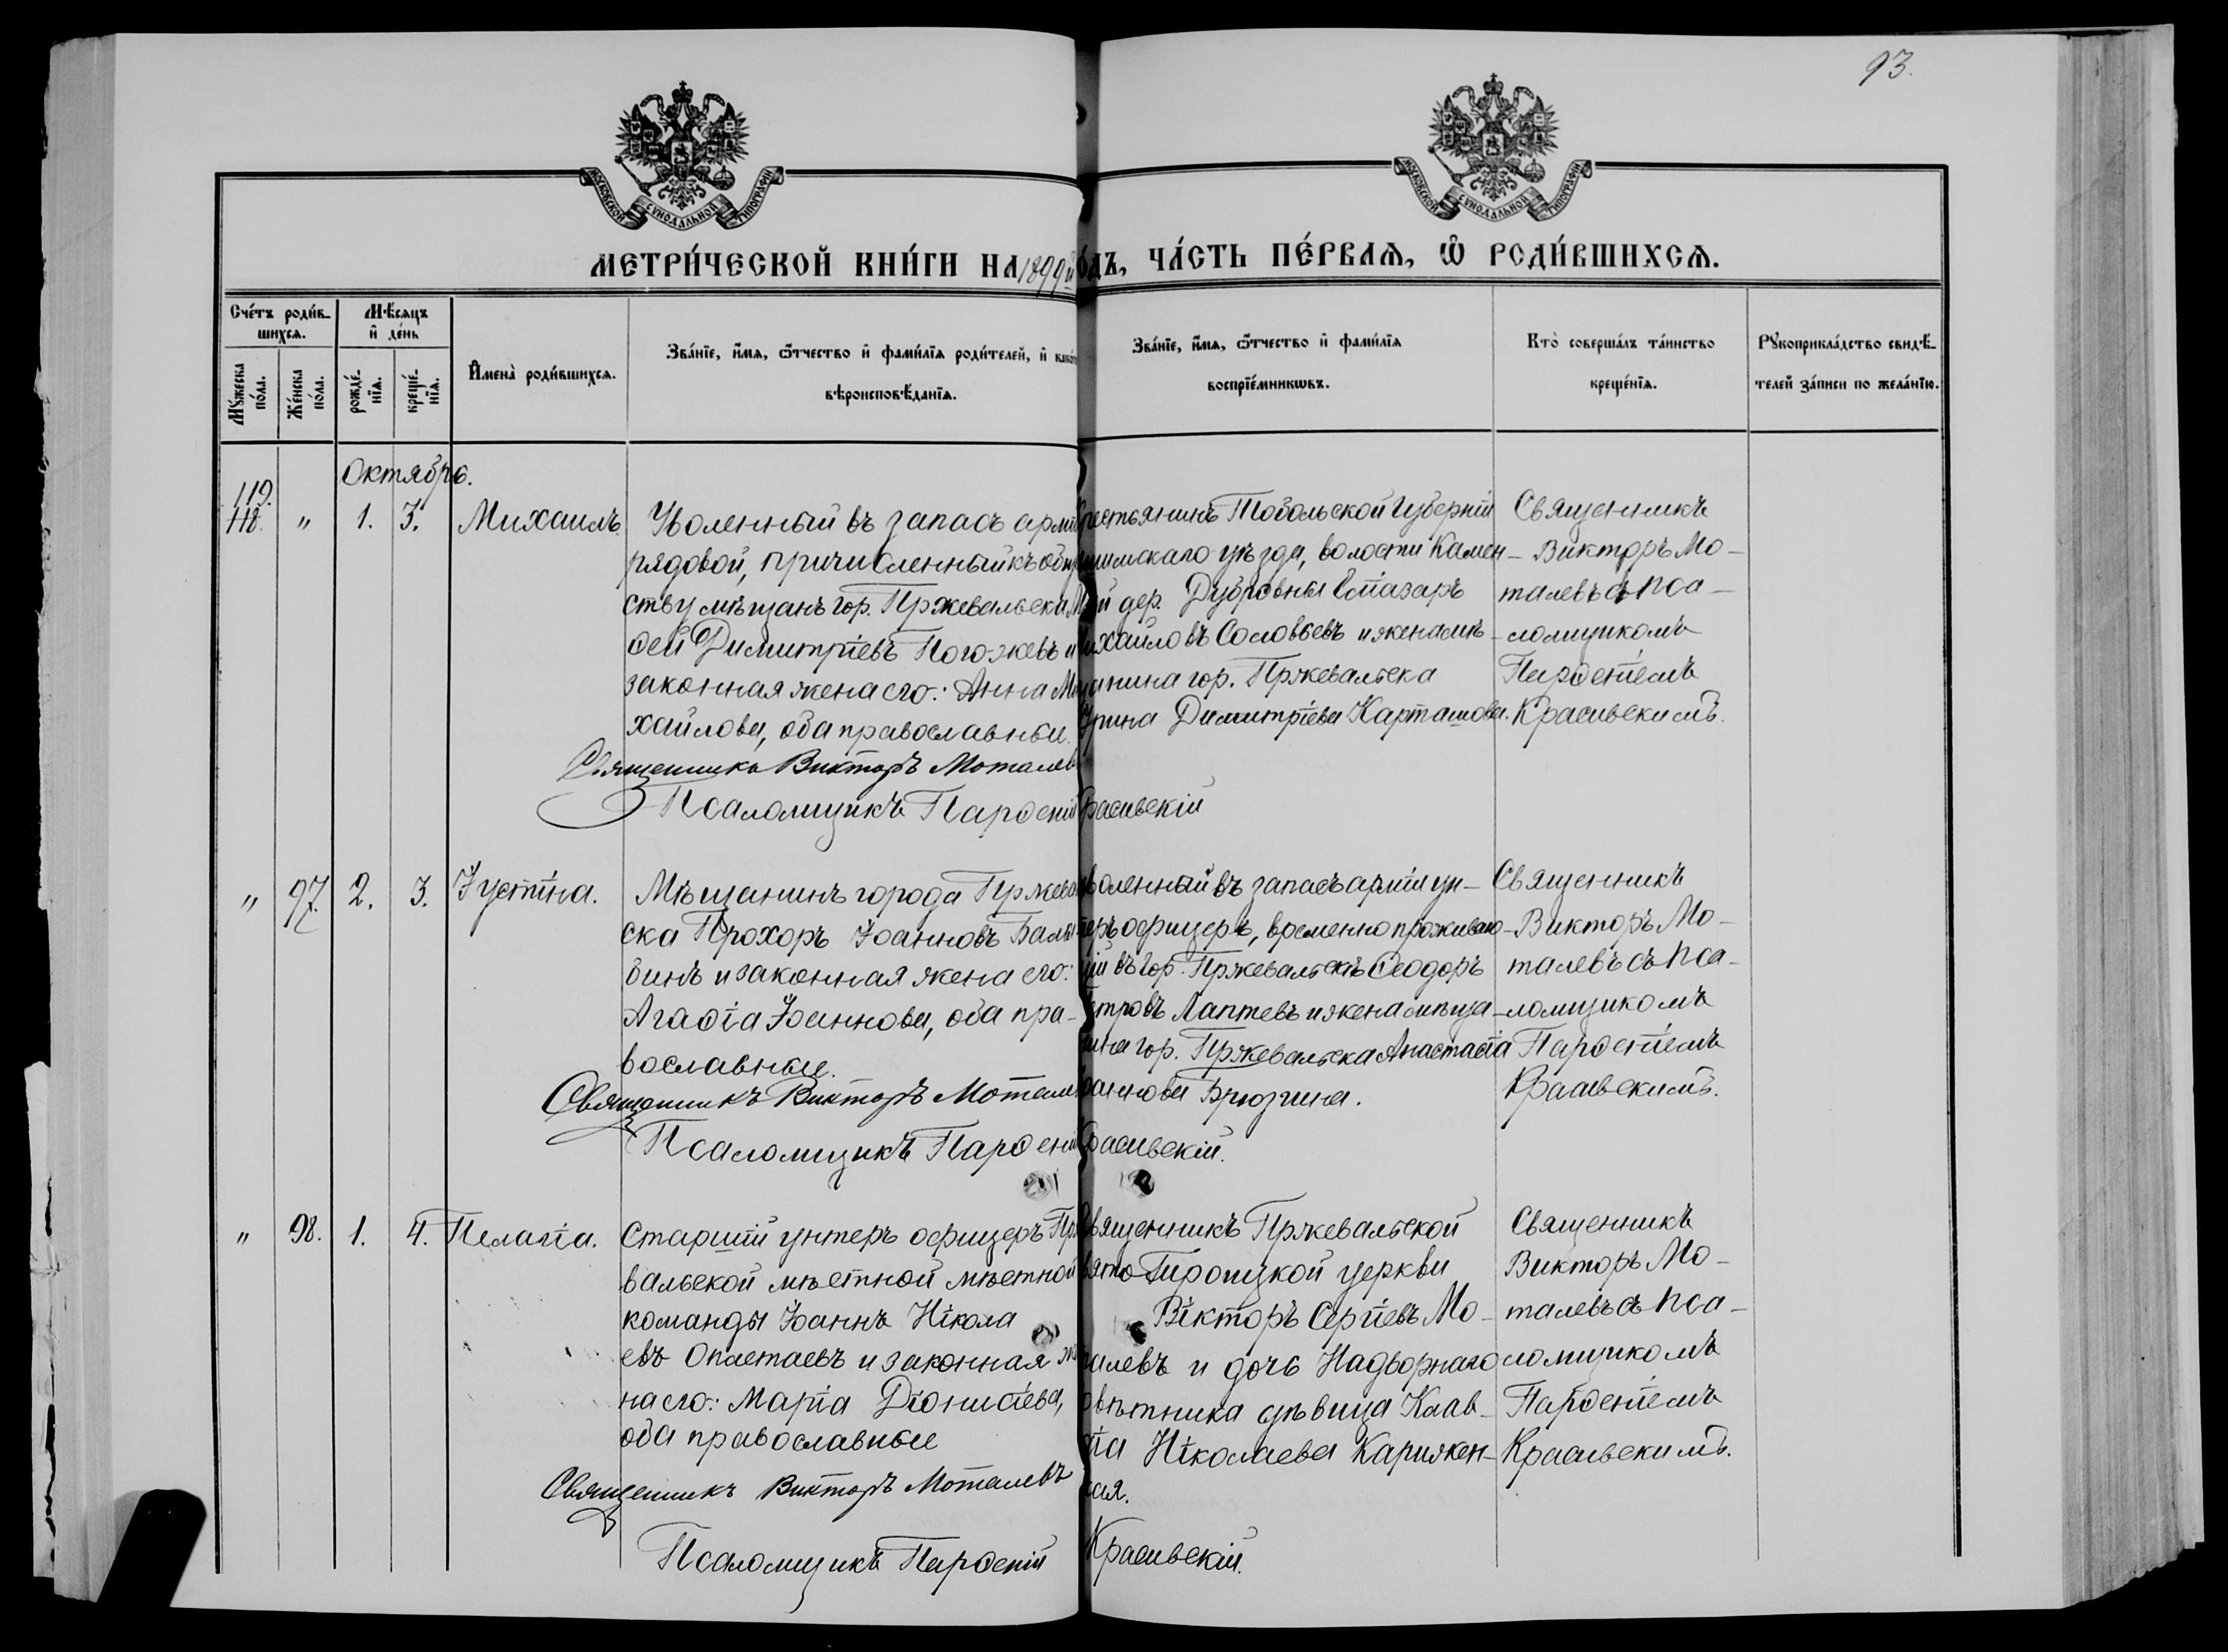 93.
МОСКОВСКОЙ СѴНОДАЛЬНОЙ ТИПОГРАФІИ
МОСКОВСКОЙ СѴНОДАЛЬНОЙ ТИПОГРАФІИ
МЕТРИ́ЧЕСКОЙ КНИ́ГИ НА 1899й
ЧА́СТЬ ПЕ́РВАѦ, Ѡ҆ РОДИ́ВШИХСѦ.
Сче́тъ роди́в-
шихсѧ.
Мѣ́сѧцъ
и҆ де́нь
Мꙋ́жеска
по́ла.
Же́нска
по́ла.
рожде́-
нїѧ.
креще́-
нїѧ.
И҆мена̀ роди́вшихсѧ.
Зва́нїе, и҆́мѧ, ѻ҆́тчество и҆ фами́лїѧ роди́телей, и҆
вѣроисповѣ́данїѧ.
Зва́нїе, и҆́мѧ, ѻ҆́тчество и҆ фами́лїѧ
воспрїе́мникѡвъ.
Кто̀ соверша́лъ та́инство
креще́нїѧ.
Рꙋкоприкла́дство свидѣ́-
телей за́писи по жела́нїю.
Октябрь.
119.
118.
" 1. 3. Михаилъ.
Уволенный въ запасъ арміи
рядовой, причисленный къ
ству мѣщанъ гор. Пржевальска
Димитріевъ Погожевъ и
законная жена его: Анна Ми
хайлова, оба православные.
Священникъ Викторъ Моталевъ
Псаломщикъ Парѳеній
Крестьянинъ Тобольской Губерніи
уѣзда, волости Камен-
дер. Дубровны
Михайловъ Соловьевъ и жена мѣ-
щанина гор. Пржевальска
Ирина Димитріева Карташова.
Красивскій
Священникъ
Викторъ Мо-
талевъ съ пса-
ломщикомъ
Парѳеніемъ
Красивскимъ.
" 97. 2. 3. Іустіна.
Мѣщанинъ города Пржеваль
ска Прохоръ Іоанновъ
бинъ и законная жена его:
Агаѳіа Іоаннова, оба пра-
вославные.
Священникъ Викторъ Моталевъ
Псаломщикъ Парѳеній
Уволенный въ запасъ арміи ун-
теръ офицеръ, временно проживаю-
щій въ гор. Пржевальскѣ Ѳеодоръ
Петровъ Лаптевъ и жена мѣща-
нина гор. Пржевальска Анастасіа
Іоаннова Брюзгина.
Красивскій.
Священникъ
Викторъ Мо-
талевъ съ пса-
ломщикомъ
Парѳеніемъ
Красивскимъ.
" 98. 1. 4. Пелагіа.
Старшій унтеръ офицеръ Прже
вальской мѣстной мѣстной
команды Іоаннъ Нікола
евъ и законная же
на его: Маріа Діонисіева,
оба православные
Священникъ Викторъ Моталевъ
Псаломщикъ Парѳеній
Священникъ Пржевальской
Свято Троицкой церкви
Вікторъ Сергіевъ Мо-
талевъ и дочь Надворнаго
Совѣтника дѣвица Клав-
діа Ніколаева
ская.
Красивскій.
Священникъ
Викторъ Мо-
талевъ съ пса-
ломщикомъ
Парѳеніемъ
Красивскимъ.